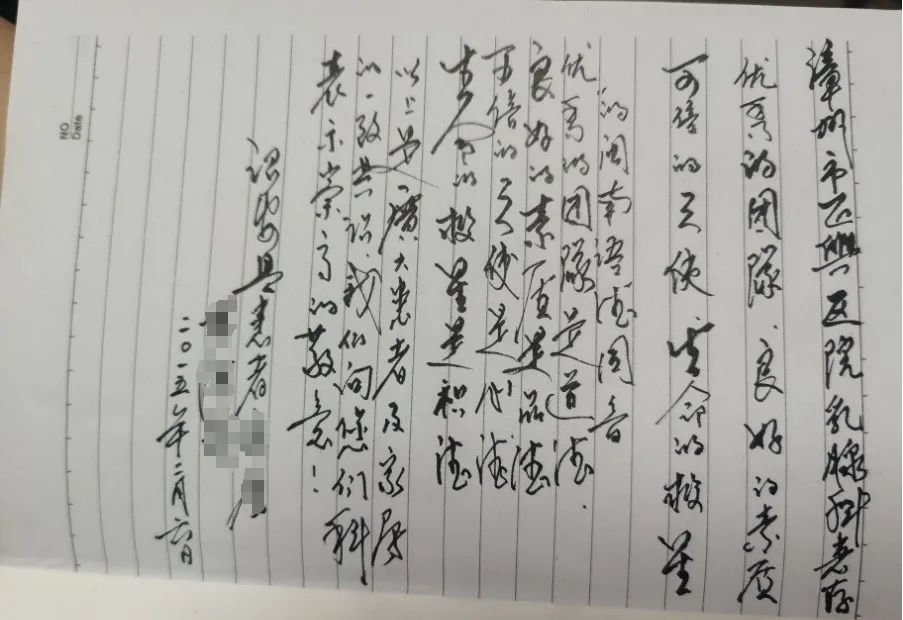 NO
Date
漳州市正興医院乳腺科惠存
优秀的团隊、良好的素质
的天使、生命的救星
的闽南语德同音
优秀的团隊是道德.
良好的素质是品德
的天使是心德
生命的救星是积德
以上是廣大患者及家属
的一致共识.我们向您们科
表示崇高的敬意！
诏安县患者
二〇一五年二月六日